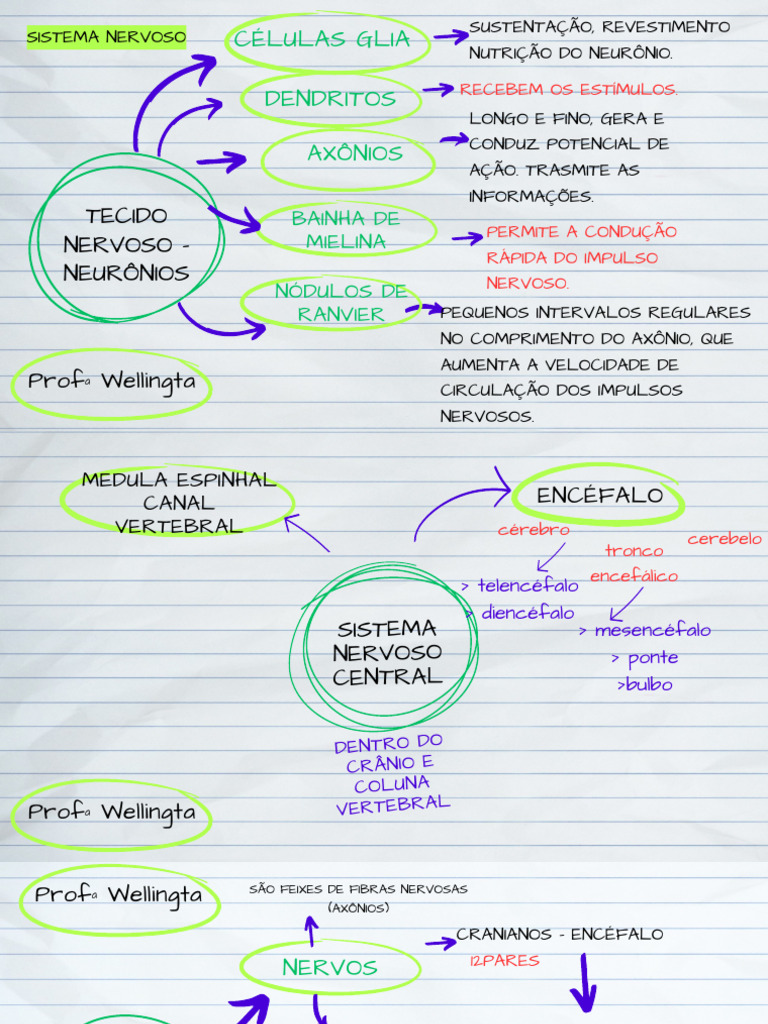 SISTEMA NERVOSO
CÉLULAS GLIA
SUSTENTAÇÃO, REVESTIMENTO
NUTRIÇÃO DO NEURÔNIO.
DENDRITOS
RECEBEM OS ESTÍMULOS.
AXÔNIOS
LONGO E FINO, GERA E
CONDUZ POTENCIAL DE
AÇÃO. TRASMITE AS
INFORMAÇÕES.
TECIDO
NERVOSO -
NEURÔNIOS
BAINHA DE
MIELINA
PERMITE A CONDUÇÃO
RÁPIDA DO IMPULSO
NERVOSO.
NÓDULOS DE
RANVIER
PEQUENOS INTERVALOS REGULARES
NO COMPRIMENTO DO AXÔNIO, QUE
AUMENTA A VELOCIDADE DE
CIRCULAÇÃO DOS IMPULSOS
NERVOSOS.
Profª Wellingta
MEDULA ESPINHAL
CANAL
VERTEBRAL
ENCÉFALO
cérebro
tronco
encefálico
cerebelo
> telencéfalo
> diencéfalo
> mesencéfalo
> ponte
>bulbo
SISTEMA
NERVOSO
CENTRAL
DENTRO DO
CRÂNIO E
COLUNA
VERTEBRAL
Profª Wellingta
Profª Wellingta
SÃO FEIXES DE FIBRAS NERVOSAS
(AXÔNIOS)
NERVOS
CRANIANOS - ENCÉFALO
12PARES